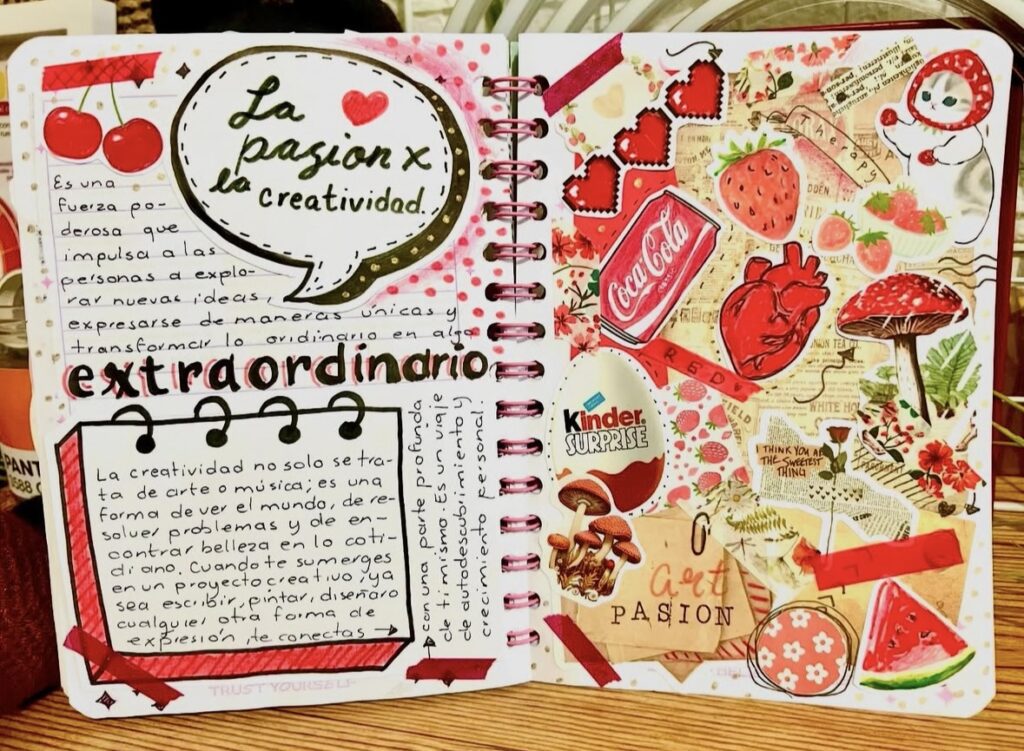 La
pasion x
la creatividad.
Es una
fuerza po-
derosa que
impulsa a las
personas a explo-
rar nuevas ideas,
expresarse de maneras únicas y
transformar lo ordinario en algo
extraordinario
La creatividad no solo se tra-
ta de arte o música; es una
forma de ver el mundo, de re-
solver problemas y de en-
contrar belleza en lo coti-
diano. Cuando te sumerges
en un proyecto creativo, ya
sea escribir, pintar, diseñar o
cualquier otra forma de
expresión, te conectas →
con una parte profunda
de ti mismo. Es un viaje
de autodescubrimiento y
crecimiento personal.
TRUST YOURSELF
THERAPY
Coca-Cola
CLASSIC
RED
Kinder
SURPRISE
WHITE HO
I THINK YOU ARE
THE SWEETEST
THING
art
PASION
PANT